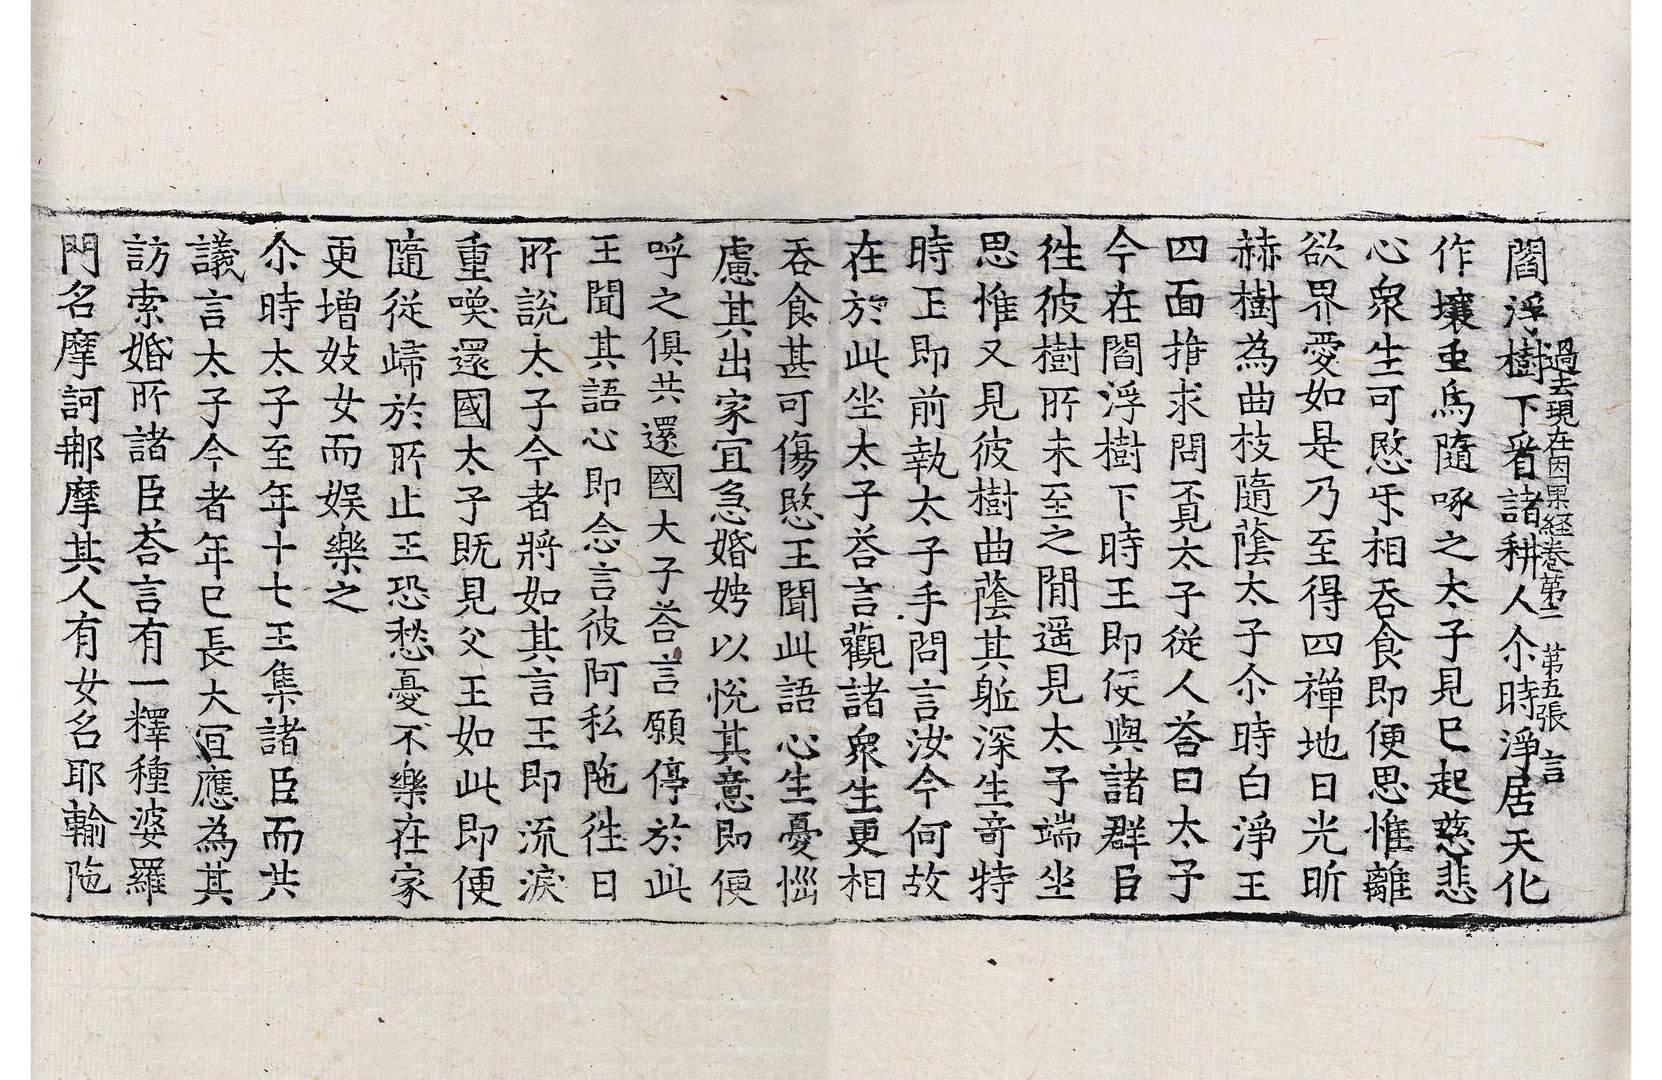 過去現在因果経卷第二　第五張　言
閻浮樹下看諸耕人尒時淨居天化
作壤虫烏隨啄之太子見已起慈悲
心衆生可愍㸦相吞食即便思惟離
欲界愛如是乃至得四禪地日光昕
赫樹為曲枝隨蔭太子尒時白淨王
四面推求問覔太子從人荅曰太子
今在閻浮樹下時王即便與諸群臣
徃彼樹所未至之閒遥見太子端坐
思惟又見彼樹曲蔭其躰深生竒特
時王即前執太子手問言汝今何故
在於此坐太子荅言觀諸衆生更相
吞食甚可傷愍王聞此語心生憂惱
慮其出家宜急婚娉以悅其意即便
呼之俱共還國大子荅言願停於此
王聞其語心即念言彼阿私陁徃日
所說太子今者將如其言王即流淚
重喚還國太子旣見父王如此即便
隨從歸於所止王恐愁憂不樂在家
更增妓女而娛樂之
尒時太子至年十七王集諸臣而共
議言太子今者年已長大宜應為其
訪索婚所諸臣荅言有一釋種婆羅
門名摩訶那摩其人有女名耶輸陁